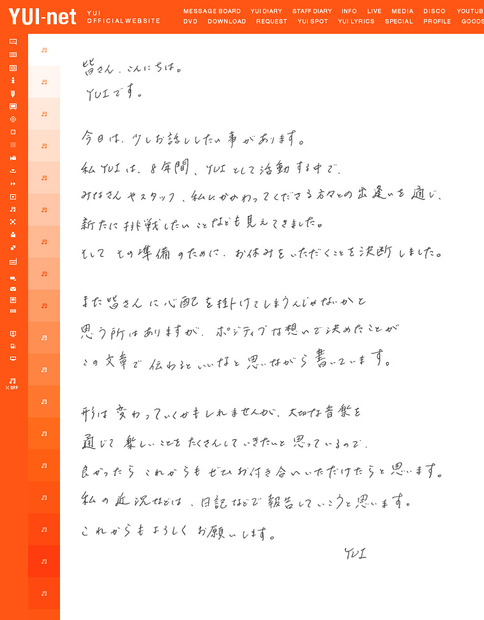 YUI-net
YUI
OFFICIALWEBSITE
MESSAGE BOARD YUI DIARY STAFF DIARY INFO LIVE MEDIA DISCO YOUTUB
DVD DOWNLOAD REQUEST YUI SPOT YUI LYRICS SPECIAL PROFILE GOODS
皆さん、こんにちは。
YUIです。
今日は、少しお話ししたい事があります。
私YUIは、8年間、YUIとして活動する中で、
みなさんやスタッフ、私にかかわってくださる方々との出逢いを通じ、
新たに挑戦したいことなども見えてきました。
そして その準備のために、お休みをいただくことを決断しました。
また皆さんに心配を掛けてしまうんじゃないかと
思う所はありますが、ポジティブな想いで決めたことが
この文章で伝わるといいなと思いながら書いています。
形は変わっていくかもしれませんが、大切な音楽を
通じて楽しいことをたくさんしていきたいと思っているので、
良かったら これからもぜひお付き合いいただけたらと思います。
私の近況などは、日記などで報告していこうと思います。
これからもよろしくお願いします。
YUI
OFF